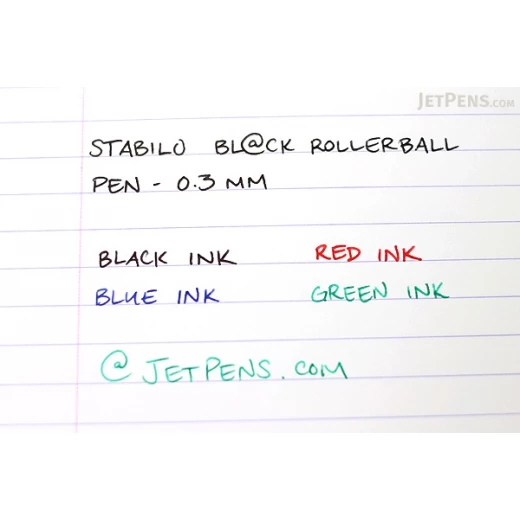 JETPENS.COM
STABILO BL@CK ROLLERBALL
PEN - 0.3 MM
BLACK INK RED INK
BLUE INK GREEN INK
@ JETPENS.COM